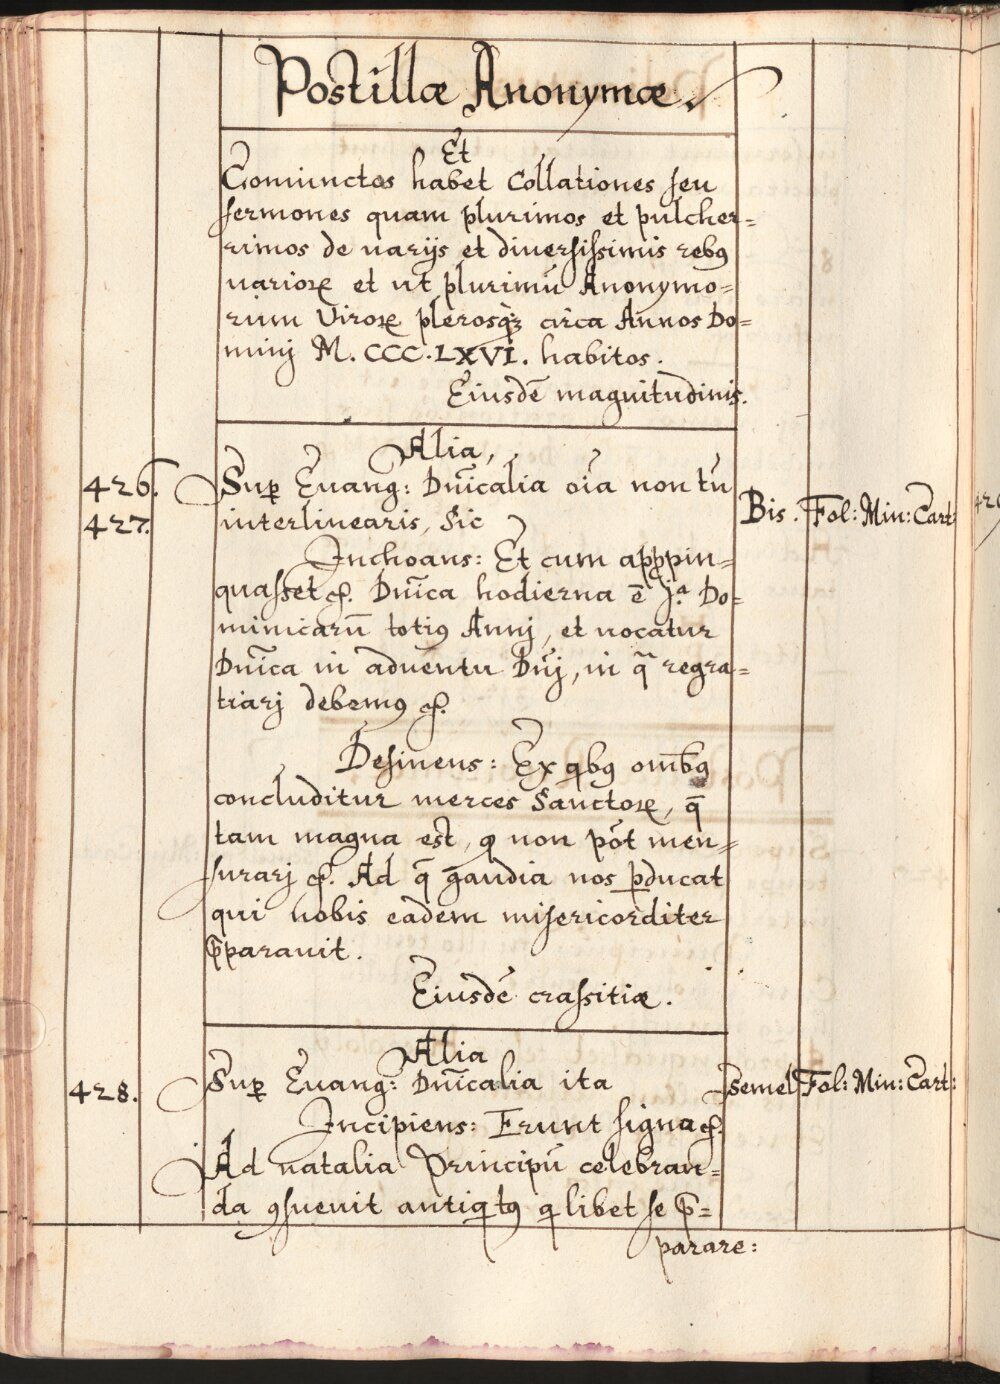 Postillæ Anonymæ.
Et
Coniunctos habet Collationes seu
sermones quam plurimos et pulcher=
rimos de uarijs et diuersissimis rebꝯ
uarioꝝ et ut plurimū Anonymo=
rum Viroꝝ plerosqꝫ circa Annos Do=
minj M. CCC. LXVI. habitos.
Eiusdē magnitudinis.
Alia,
426. Suꝑ Euang: Dn̄icalia oīa non tn̄
427. interlinearis, sic Bis. Fol: Min: Cart:
Inchoans: Et cum aꝓpin=
quasset ꝭ. Dn̄ica hodierna ē j.ª Do=
minicarū totiꝯ Annj, et uocatur
Dn̄ica in aduentu Dn̄j, in q̄ regra=
tiarj debemꝯ ꝭ.
Desinens: Ex qꝫbꝯ om̄bꝯ
concluditur merces Sanctoꝝ, q̄
tam magna est, ꝙ non pōt men=
surarj ꝭ. Ad q̄ gaudia nos ꝑducat
qui nobis eadem misericorditer
p̄parauit.
Eiusdē crassitiæ.
Alia
428. Suꝑ Euang: Dn̄icalia ita semel Fol: Min: Cart:
Incipiens: Erunt signa ꝭ.
Ad natalia Principū celebran=
da ꝯsueuit antiqꝰtꝯ qꝰlibet se p̄=
parare: